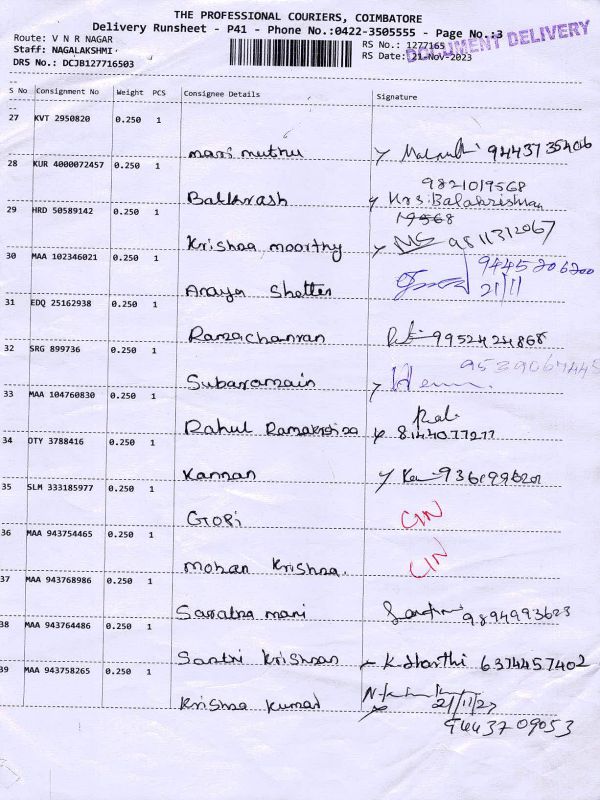 THE PROFESSIONAL COURIERS, COIMBATORE
Delivery Runsheet - P41 - Phone No.:0422-3505555 - Page No.:3
Route: V N R NAGAR
Staff: NAGALAKSHMI
DRS No.: DCJB127716503
RS No.: 1277165
RS Date: 21-Nov-2023
DOCUMENT DELIVERY
S No Consignment No Weight PCS Consignee Details Signature
27 KVT 2950820 0.250 1
mari muthu 9443735406
28 KUR 4000072457 0.250 1
9821019568
Balkrash Mrs. Balakrishnan
19568
29 HRD 50589142 0.250 1
Krishna moorthy 9811312067
30 MAA 102346021 0.250 1
9445206200
Araya Shetter 21/11
31 EDQ 25162938 0.250 1
Ramachanran 9952424868
32 SRG 899736 0.250 1
9539067445
Subaramain
33 MAA 104760830 0.250 1
Rahul Ramakrishna 8144077277
34 OTY 3788416 0.250 1
Kannan
35 SLM 333185977 0.250 1
Gopi CIN
36 MAA 943754465 0.250 1
mohan Krishna. CIN
37 MAA 943768986 0.250 1
Saratna mari 9894993623
38 MAA 943764486 0.250 1
Santri Krishnan K. Harthi 6374457402
39 MAA 943758265 0.250 1
Krishna Kumar 21/11/23
9443709053